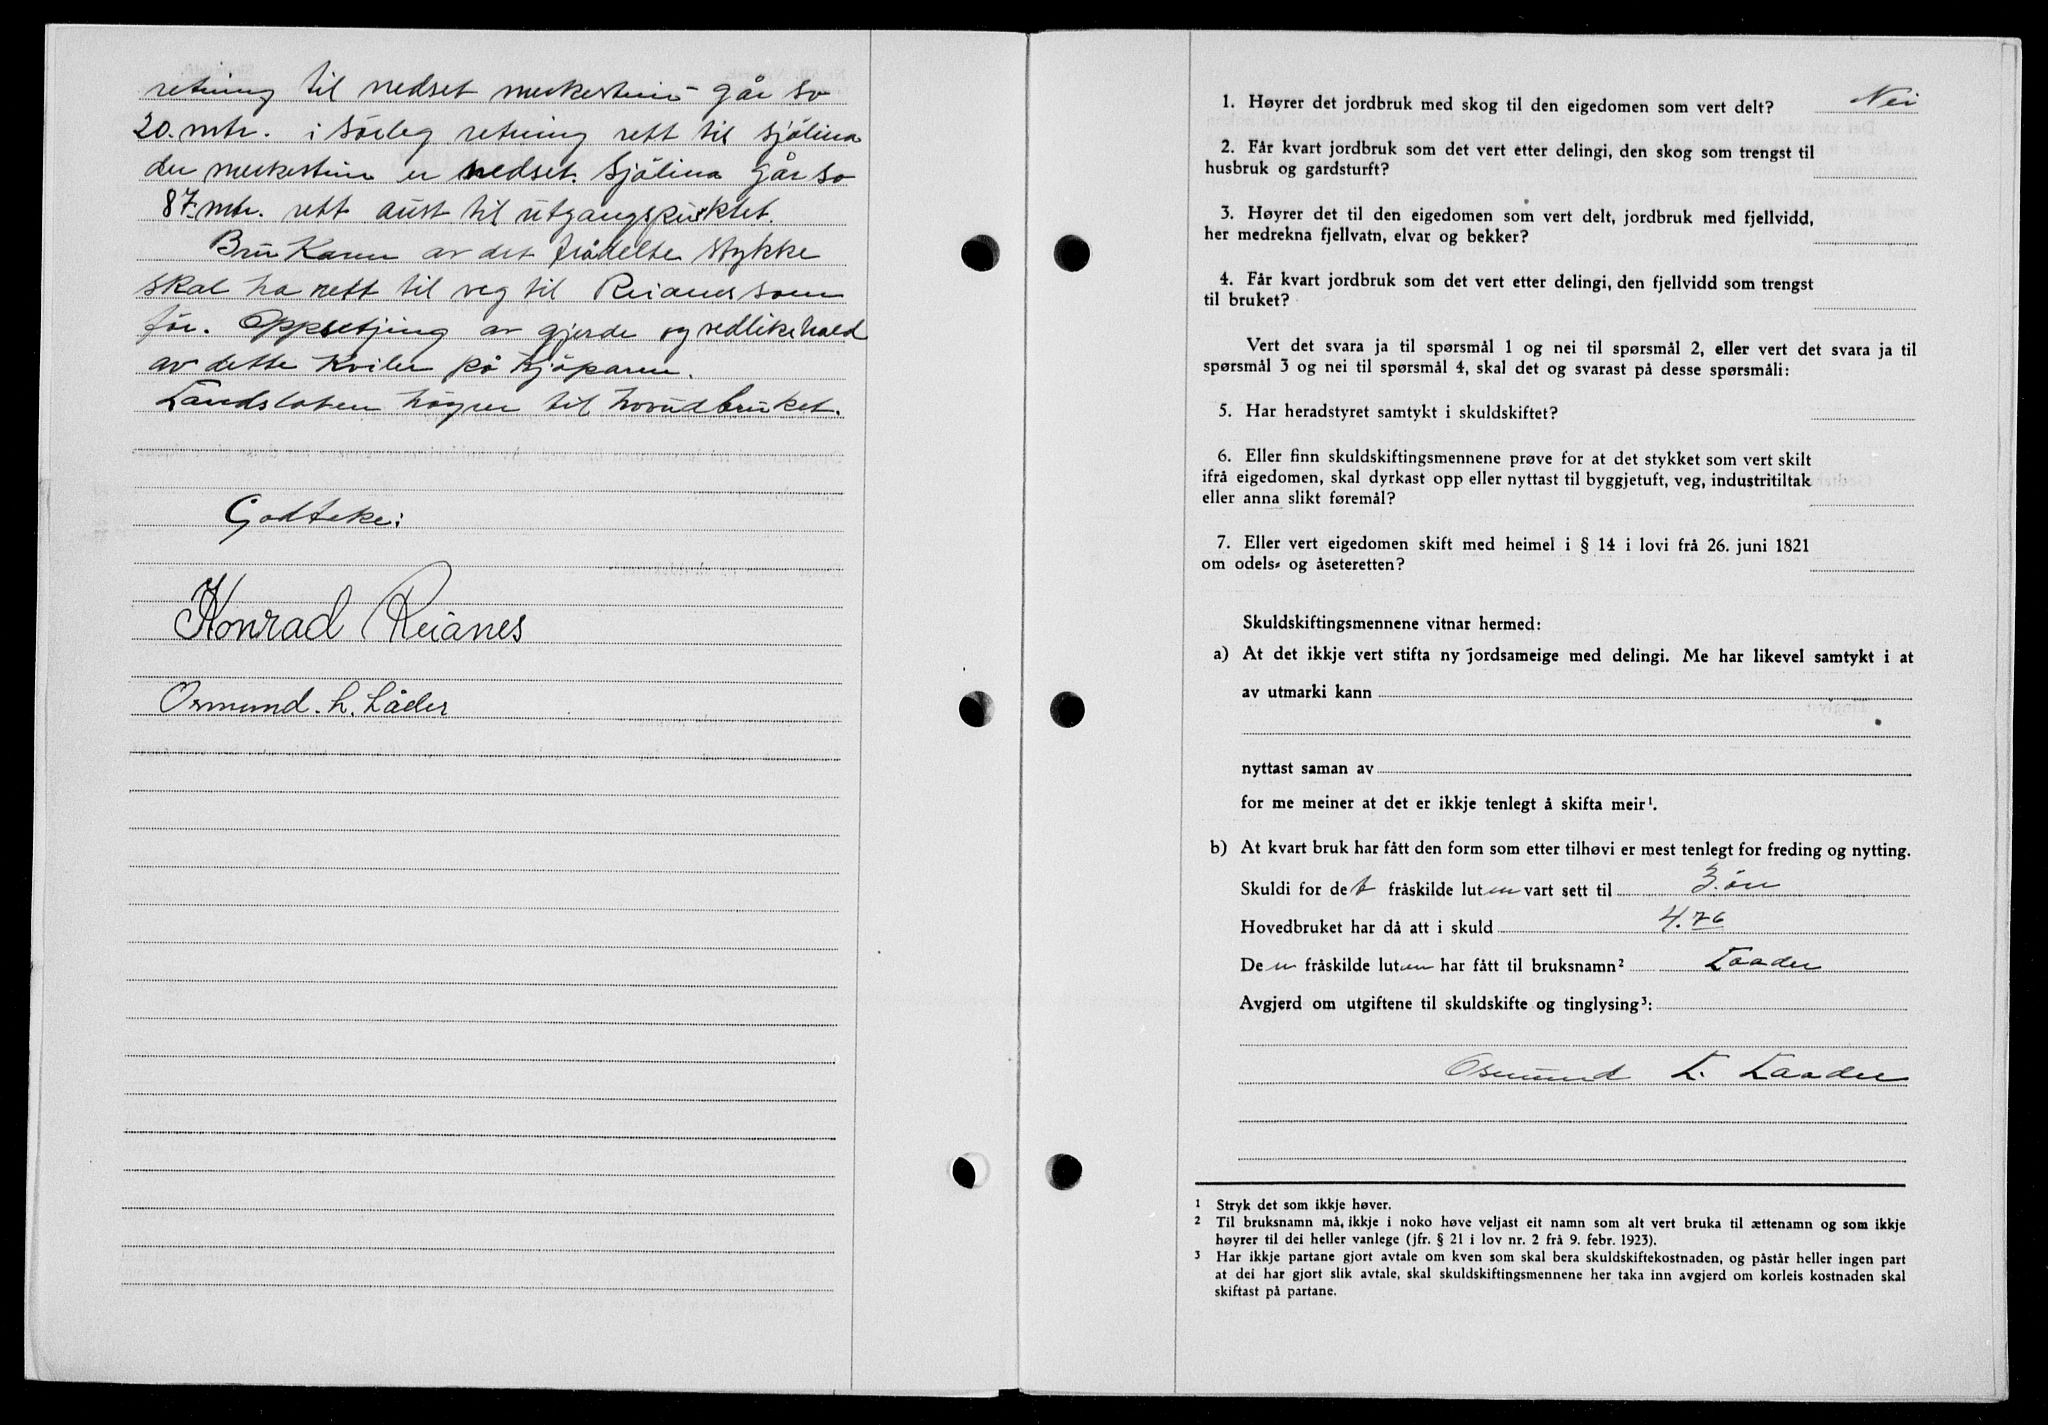 retning til nedset merkestein - går so
20. mtr. i sörleg retning rett til sjölina
der merkestein er nedset. Sjölina går so
87. mtr. rett aust til utgangspunktet.
Brukaren av det frådelte stykke
skal ha rett til veg til Reianes som
för. Oppsetjing av gjerde og vedlikehald
av dette kviler på kjöparen.
Landsloten höyrer til hovudbruket.
Godteke:
Konrad Reianes
Osmund. L. Låder
1. Høyrer det jordbruk med skog til den eigedomen som vert delt? Nei
2. Får kvart jordbruk som det vert etter delingi, den skog som trengst til
husbruk og gardsturft?
3. Høyrer det til den eigedomen som vert delt, jordbruk med fjellvidd,
her medrekna fjellvatn, elvar og bekker?
4. Får kvart jordbruk som det vert etter delingi, den fjellvidd som trengst
til bruket?
Vert det svara ja til spørsmål 1 og nei til spørsmål 2, eller vert det svara ja til
spørsmål 3 og nei til spørsmål 4, skal det og svarast på desse spørsmåli:
5. Har heradstyret samtykt i skuldskiftet?
6. Eller finn skuldskiftingsmennene prøve for at det stykket som vert skilt
ifrå eigedomen, skal dyrkast opp eller nyttast til byggjetuft, veg, industritiltak
eller anna slikt føremål?
7. Eller vert eigedomen skift med heimel i § 14 i lovi frå 26. juni 1821
om odels- og åseteretten?
Skuldskiftingsmennene vitnar hermed:
a) At det ikkje vert stifta ny jordsameige med delingi. Me har likevel samtykt i at
av utmarki kann
nyttast saman av
for me meiner at det er ikkje tenlegt å skifta meir¹.
b) At kvart bruk har fått den form som etter tilhøvi er mest tenlegt for freding og nytting.
Skuldi for det fråskilde luten vart sett til 3. øre
Hovedbruket har då att i skuld 4.76
Den fråskilde luten har fått til bruksnamn² Laader
Avgjerd om utgiftene til skuldskifte og tinglysing³:
Osmund L. Laader
1 Stryk det som ikkje høver.
2 Til bruksnamn må, ikkje i noko høve veljast eit namn som alt vert bruka til ættenamn og som ikkje
høyrer til dei heller vanlege (jfr. § 21 i lov nr. 2 frå 9. febr. 1923).
3 Har ikkje partane gjort avtale om kven som skal bera skuldskiftekostnaden, og påstår heller ingen part
at dei har gjort slik avtale, skal skuldskiftingsmennene her taka inn avgjerd om korleis kostnaden skal
skiftast på partane.